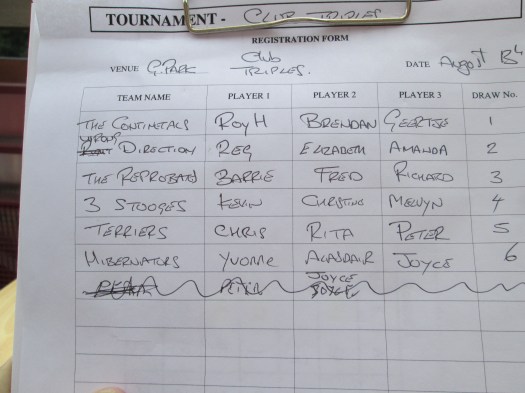 TOURNAMENT - CLUB TRIPLES
REGISTRATION FORM
VENUE G.PARK Club TRIPLES. DATE August 13th
TEAM NAME PLAYER 1 PLAYER 2 PLAYER 3 DRAW No.
THE CONTINETALS ROY H BRENDAN GEERTJE 1
WRONG DIRECTION REG ELIZABETH AMANDA 2
THE REPROBATES BARRIE FRED RICHARD 3
3 STOOGES KEVIN CHRISTINE MELVYN 4
TERRIERS CHRIS RITA PETER 5
HIBERNATORS YVONNE ALASDAIR JOYCE 6
PETER JOYCE